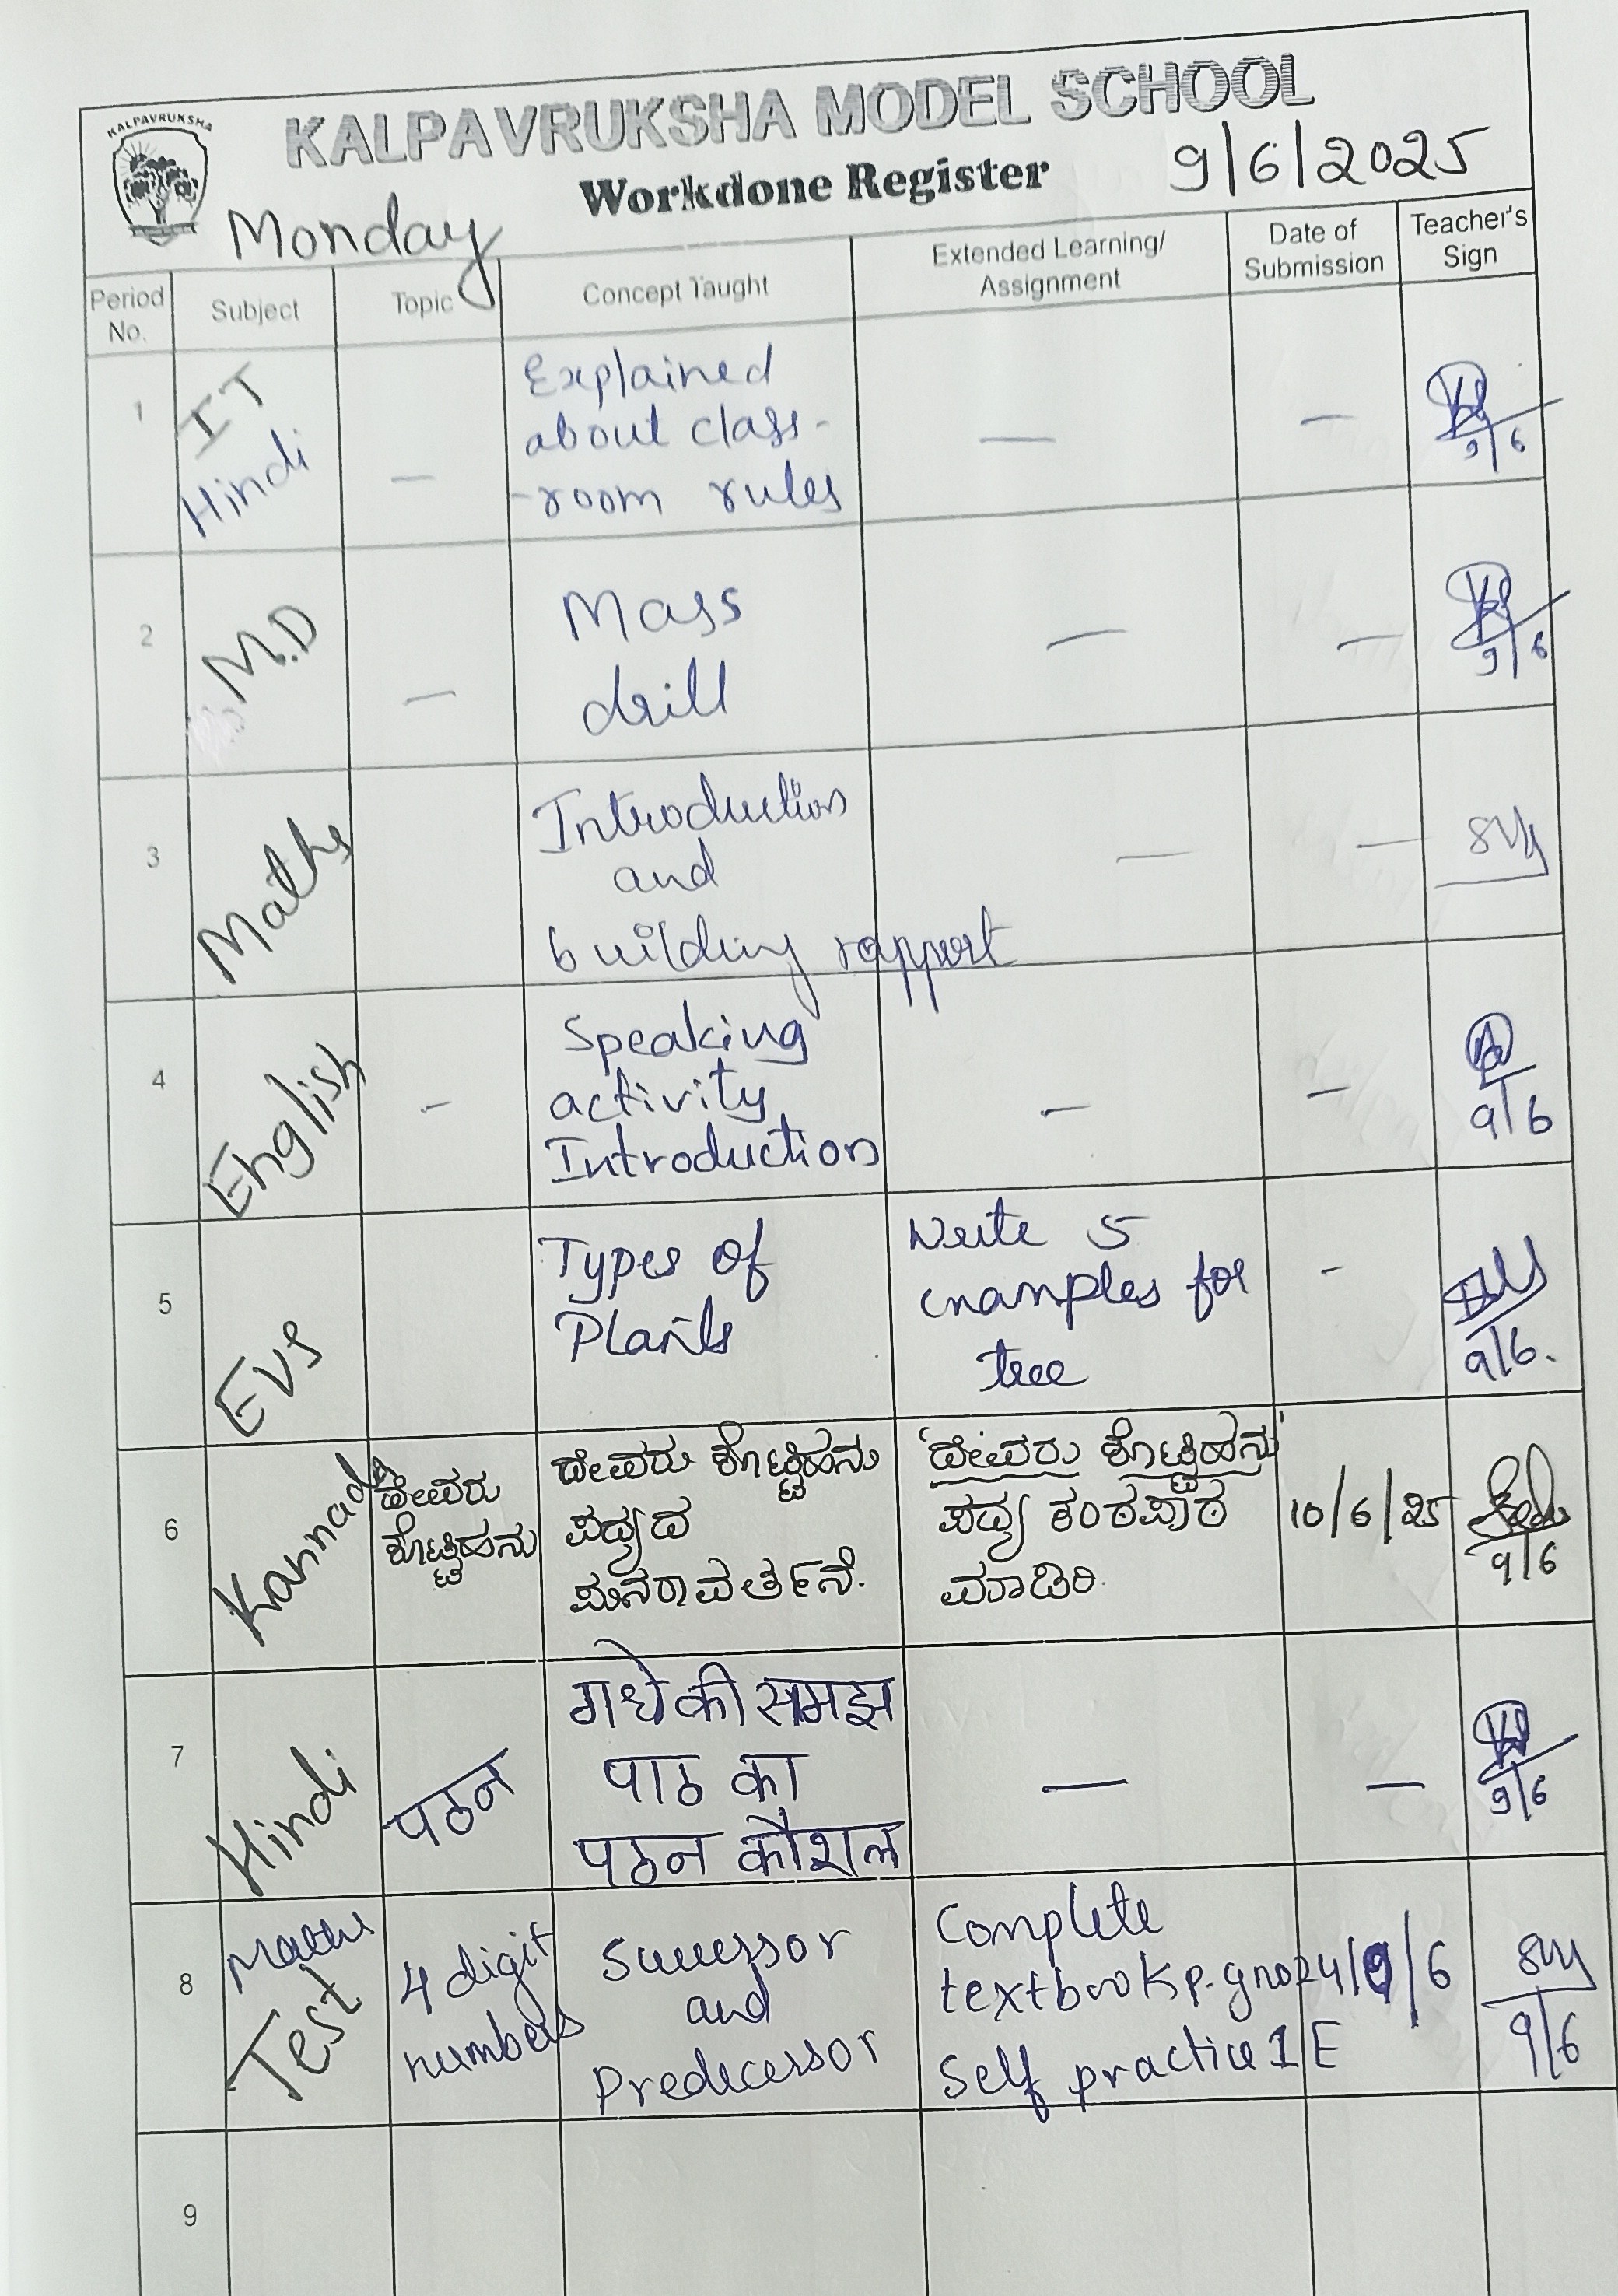 KALPAVRUKSHA
KALPAVRUKSHA MODEL SCHOOL
Workdone Register
9/6/2025
Monday
Period No.
Subject
Topic
Concept Taught
Extended Learning/
Assignment
Date of
Submission
Teacher's
Sign
1
IT
Hindi
—
Explained
about class-
-room rules
—
—
9/6
2
M.D
—
Mass
drill
—
—
9/6
3
Maths
Introduction
and
building rapport
—
—
4
English
-
Speaking
activity
Introduction
—
—
9/6
5
EVS
Types of
Plants
Write 5
examples for
tree
-
9/6.
6
Kannada
ದೇವರು
ಕೊಟ್ಟಿಹನು
ದೇವರು ಕೊಟ್ಟಿಹನು
ಪದ್ಯದ
ಪುನರಾವರ್ತನೆ.
'ದೇವರು ಕೊಟ್ಟಿಹನು'
ಪದ್ಯ ಕಂಠಪಾಠ
ಮಾಡಿರಿ.
10/6/25
9/6
7
Hindi
पठन
गधे की समझ
पाठ का
पठन कौशल
—
—
9/6
8
Maths
Test
4 digit
numbers
Successor
and
Predecessor
Complete
textbook p.g no 24
Self practice 1E
9/6
9